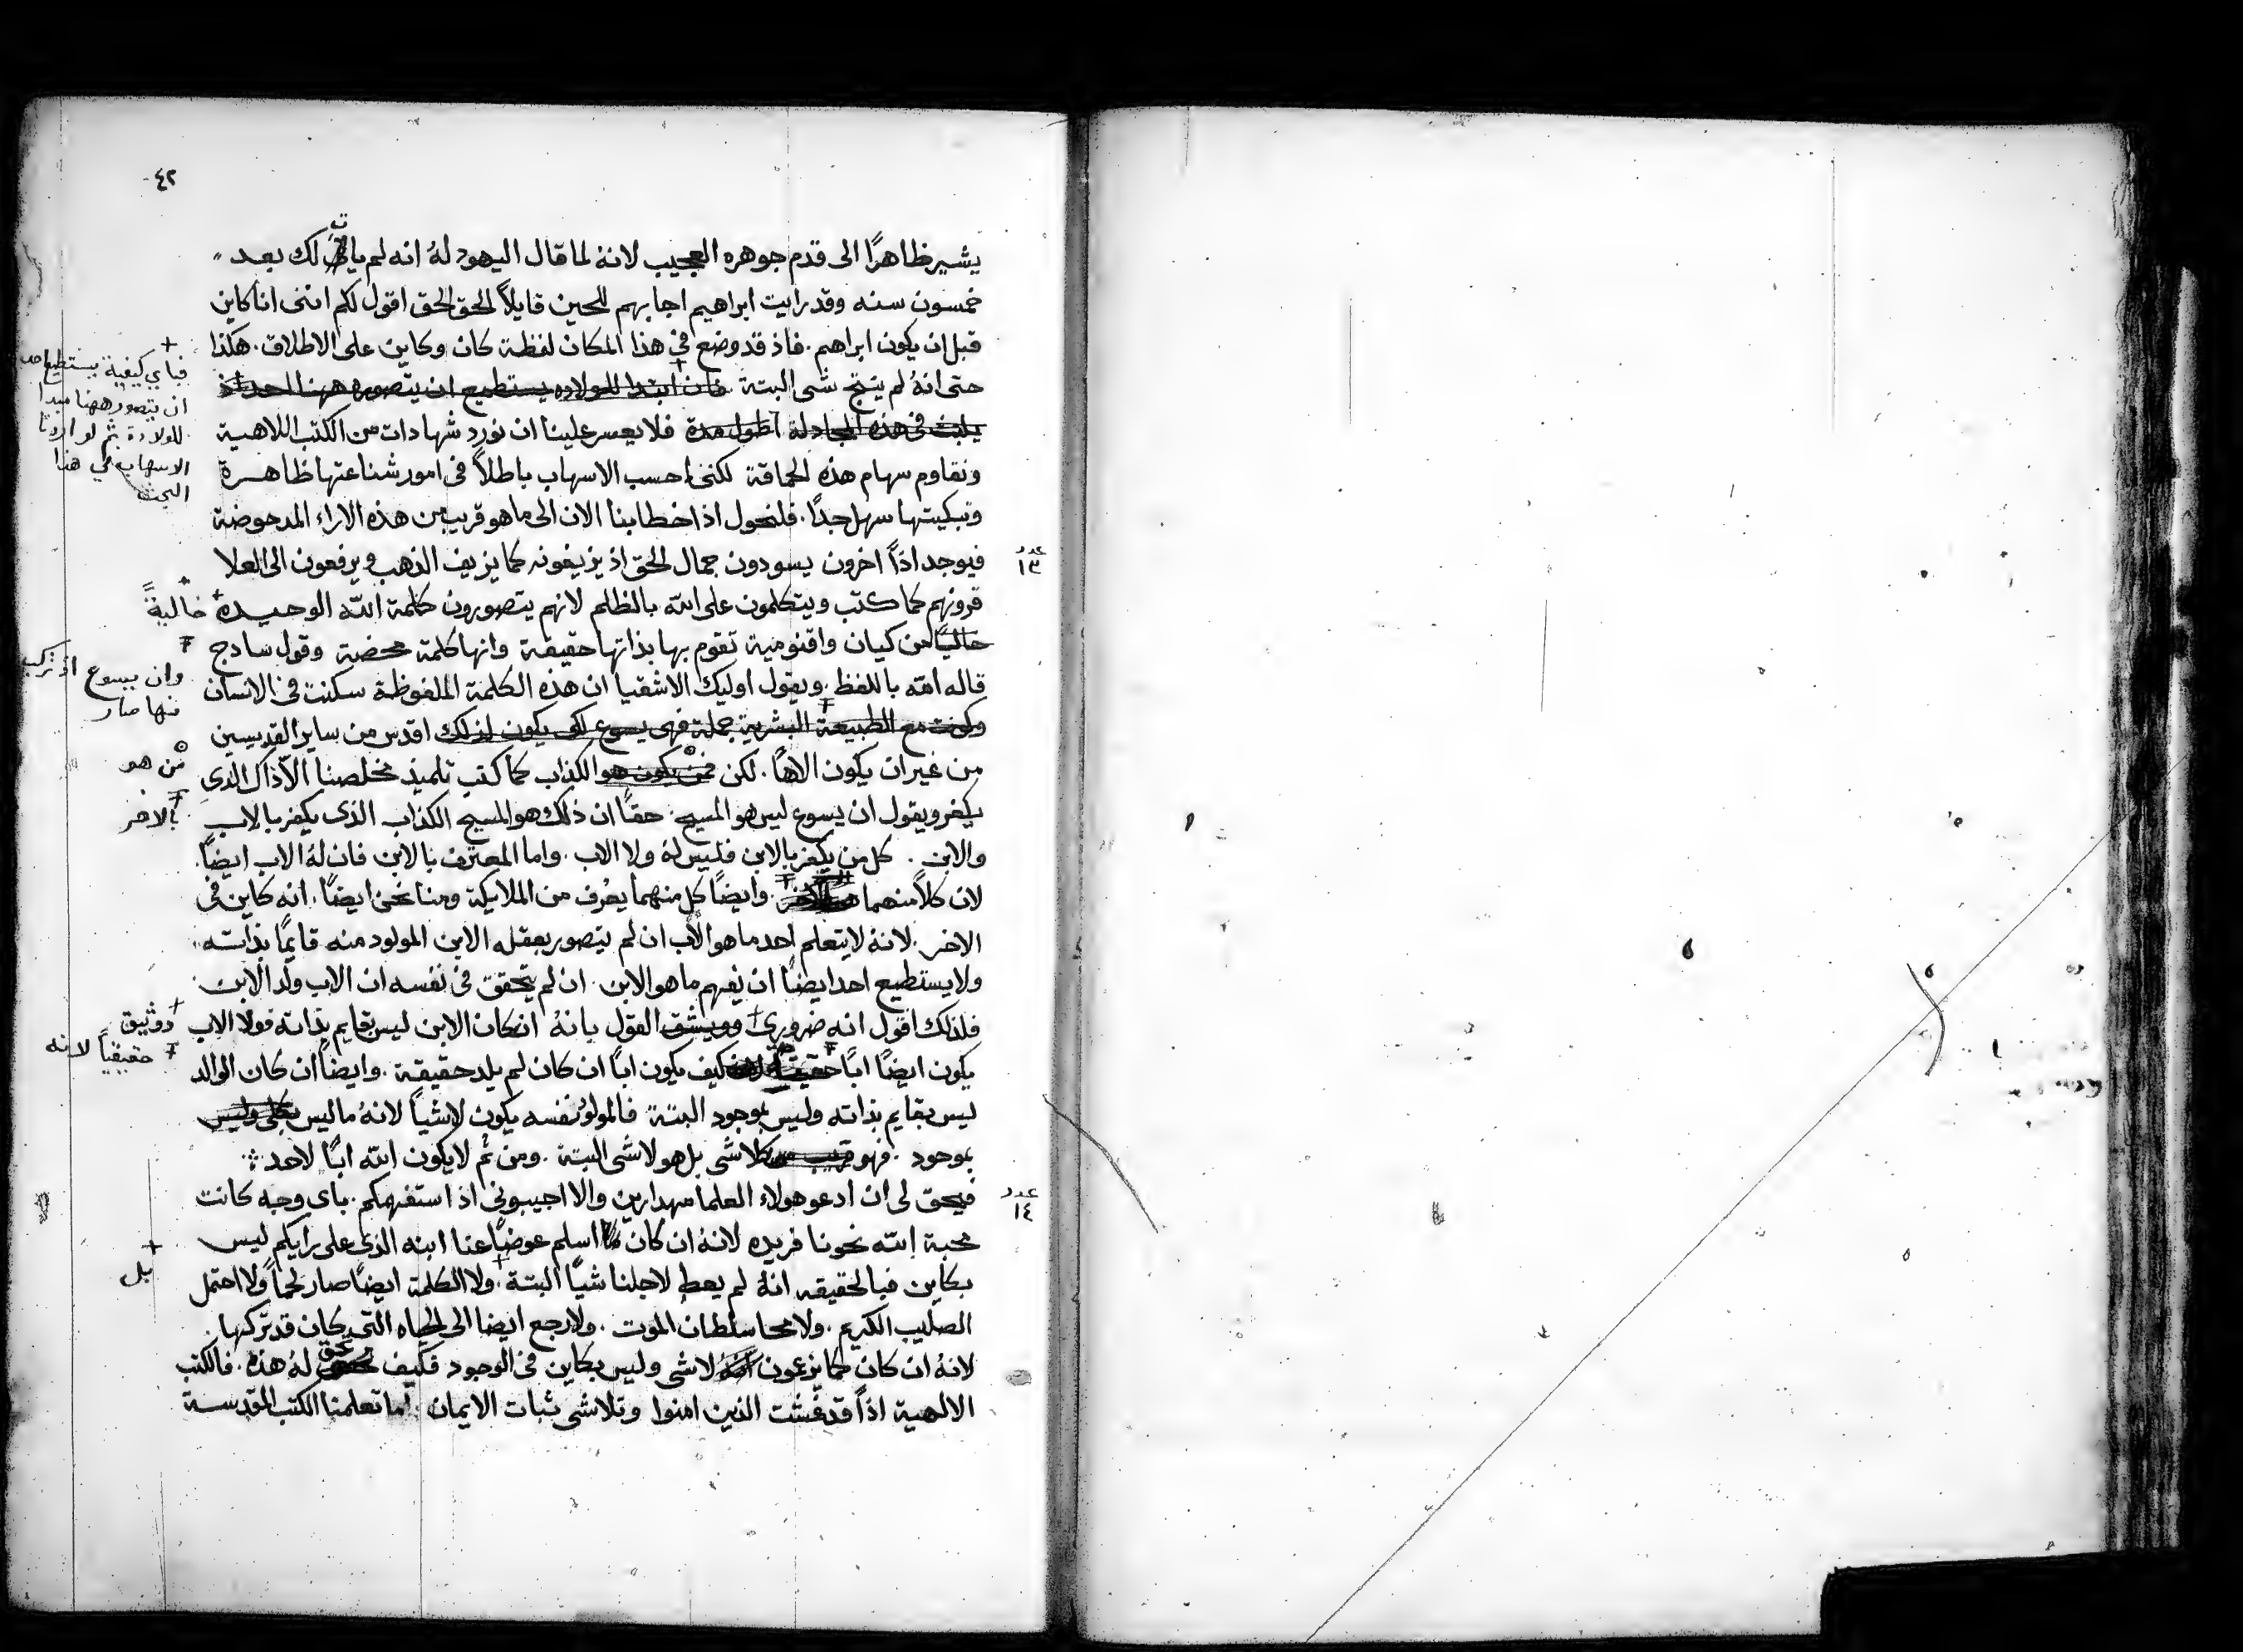 ٤٢
يشير ظاهرًا الى قدم جوهره العجيب لانهُ لما قال اليهود لهُ انه لم يات لك بعد
خمسون سنه وقد رايت ابراهيم اجابهم للحين قايلاً الحق الحق اقول لكم انني انا كاين
قبل ان يكون ابراهيم . فاذ قد وضع في هذا المكان لفظة كان وكاين على الاطلاق . هكذا
حتى انهُ لم ينتج شى البتة فان ابتدا للولاده يستطيع ان يتصوره ههنا احد اذ
يلبث في هذه المجادلة اطول مدة فلا يعسر علينا ان نورد شهادات من الكتب اللاهية
ونقاوم سهام هذه الحماقة لكننى احسب الاسهاب باطلاً في امور شناعتها ظاهرة
وتبكيتها سهل جدًا . فلنحول اذا خطابنا الان الى ما هو قريب من هذه الاراء المدحوضة
عدد ١٣
فيوجد اذاً اخرون يسودون جمال الحق اذ يزيفونه كما يزيف الذهب ويرفعون الى العلا
قرونهم كما كتب ويتكلمون على الله بالظلم لانهم يتصورون كلمة الله الوحيدة خاليةً
خاليًا من كيان واقنومية تقوم بها بذاتها حقيقة وانها كلمة محضة وقول ساذج
قاله الله باللفظ . ويقول اوليك الاشقيا ان هذه الكلمة الملفوظة سكنت في الانسان
وكونت مع الطبيعة البشرية جملة فهى يسوع لكى يكون لذلك اقدس من ساير القديسين
من غير ان يكون الاهاً . لكن فمن يكون هو الكذاب كما كتب تلميذ مخلصنا الا ذاك الذي
يكفر ويقول ان يسوع ليس هو المسيح . حقاً ان ذلك هو المسيح الكذاب الذى يكفر بالاب
والابن . كل من يكفر بالابن فليس لهُ ولا الاب . واما المعترف بالابن فان لهُ الاب ايضاً .
لان كلاً منهما هو الاخر . وايضاً كل منهما يعرف من الملايكة ومنا نحن ايضًا . انه كاين في
الاخر . لانهُ لا يتعلم احد ما هو الاب ان لم يتصور بعقله الابن المولود منه قايمًا بذاته
ولا يستطيع احد ايضاً ان يفهم ما هو الابن . ان لم يتحقق في نفسه ان الاب ولد الابن
فلذلك اقول انه ضروري وويشق القول بانهُ ان كان الابن ليس بقايم بذاته فولا الاب
يكون ايضًا ابًا حقيقة لانه كيف يكون اباً ان كان لم يلد حقيقة . وايضاً ان كان الوالد
ليس بقايم بذاته وليس بموجود البتة فالمولود نفسه يكون لا شياً لانهُ ما ليس بكلى وليس
بموجود . فهو قريب من كلاشى بل هو لا شى البتة . ومن ثم لا يكون الله ابًا لاحد
عدد ١٤
فيحق لى ان ادعو هولاء العلما مهدارين والا اجيبوني اذ استفهمكم . باى وجه كانت
محبة الله نحونا فريده لانهُ ان كان اسلم عوضًا عنا ابنه الذي على رايكم ليس
بكاين فبالحقيقه انهُ لم يعط لاجلنا شيًا البتة . ولا الكلمة ايضًا صار لحمًا ولا احتمل
الصليب الكريم . ولا محا سلطان الموت . ولا رجع ايضا الى الحياه التي كان قد تركها .
لانهُ ان كان كما يزعمون انهُ لا شى وليس بكاين في الوجود فكيف تحق لهُ هذه . فالكتب
الالهية اذاً قد غشت الذين امنوا وتلاشى ثبات الايمان . اما تعلمنا الكتب المقدسة
فباي كيفية يستطيع احد
ان يتصور ههنا مبدا
للولادة ثم لو اردنا
الاسهاب في هذا
البحث
وان يسوع اذ تركب
منها صار
من هو
بالاخر
وثيق
حقيقياً لانه
بل